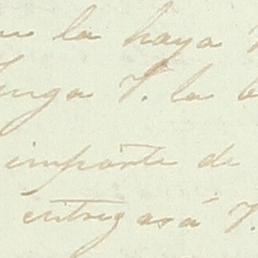 la haya
V. la
importe de
entregará V.